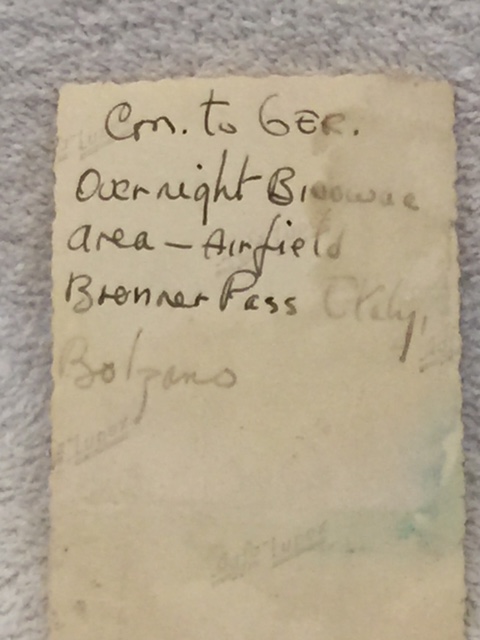 Cm. to GER.
Overnight Bivouac
area - Airfield
Brenner Pass Italy,
Bolzano